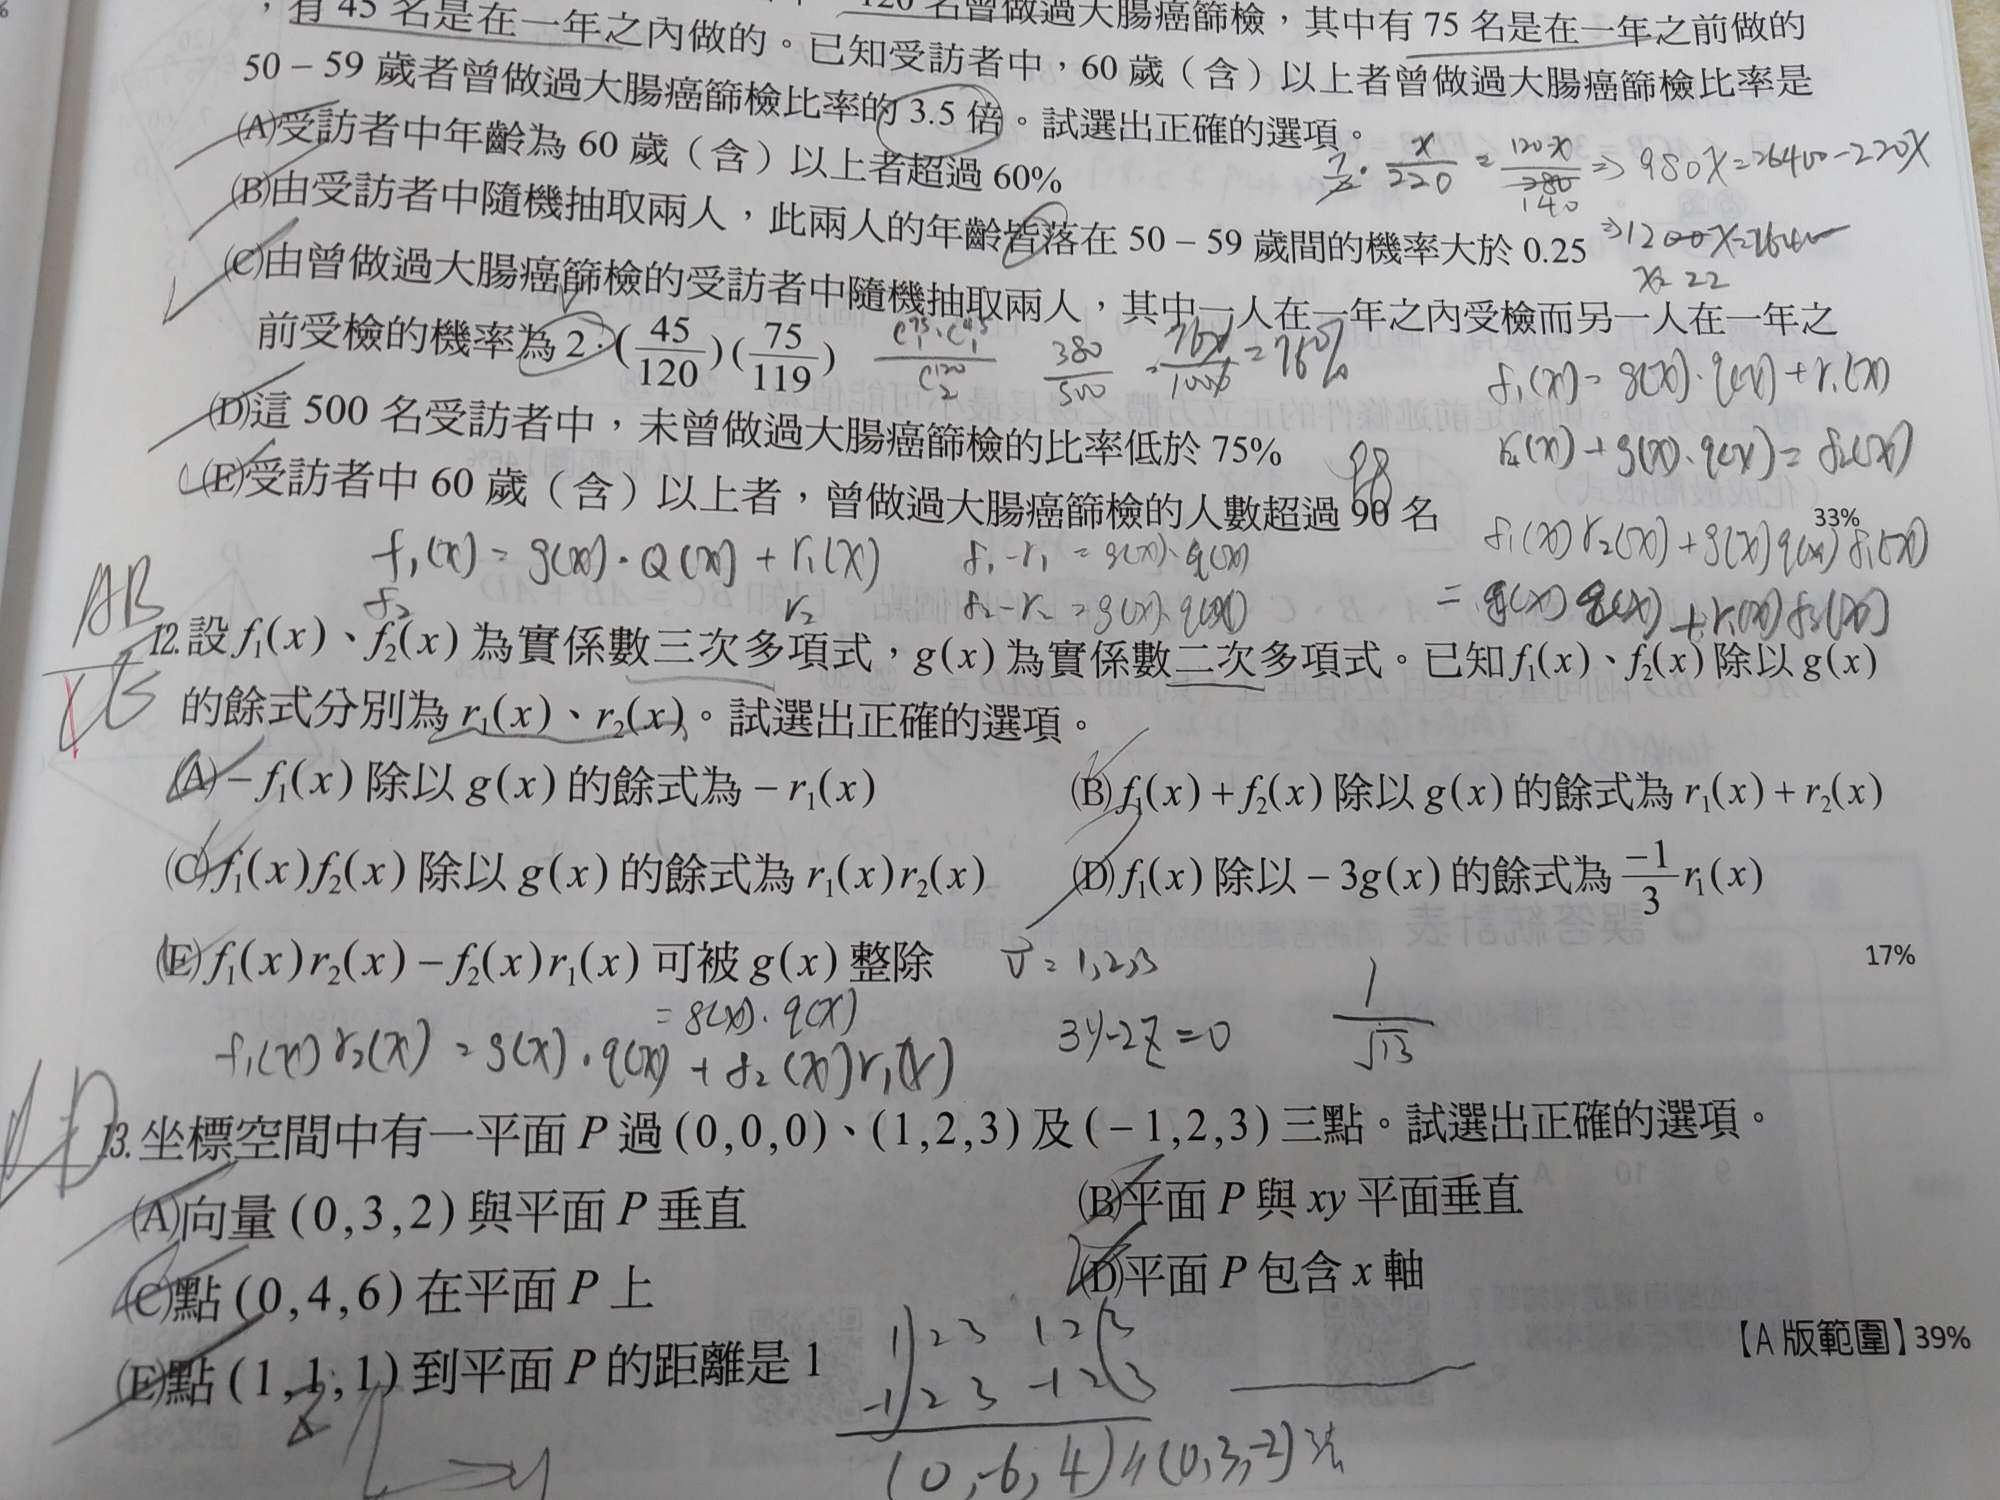 ，有 45 名是在一年之內做的。已知受訪者中，60 歲（含）以上者曾做過大腸癌篩檢比率是
120 名曾做過大腸癌篩檢，其中有 75 名是在一年之前做的
50－59 歲者曾做過大腸癌篩檢比率的 3.5 倍。試選出正確的選項。
(A)受訪者中年齡為 60 歲（含）以上者超過 60%
(B)由受訪者中隨機抽取兩人，此兩人的年齡皆落在 50－59 歲間的機率大於 0.25
(C)由曾做過大腸癌篩檢的受訪者中隨機抽取兩人，其中一人在一年之內受檢而另一人在一年之
前受檢的機率為 2·(45/120)(75/119)
(D)這 500 名受訪者中，未曾做過大腸癌篩檢的比率低於 75%
(E)受訪者中 60 歲（含）以上者，曾做過大腸癌篩檢的人數超過 90 名
33%
7/2 · x/220 = 120-x/280 140 ⇒ 980x=26400-220x
⇒1200x=26400
x=22
380/500 = 760/1000 = 76%
98
f₁(x) = g(x)·q(x)+r₁(x)
f₁(x) = g(x)·Q(x) + r₁(x)
f₂ r₂
f₁-r₁ = g(x)·q(x)
f₂-r₂ = g(x)·q(x)
AB
12.設 f₁(x)、f₂(x) 為實係數三次多項式，g(x) 為實係數二次多項式。已知 f₁(x)、f₂(x) 除以 g(x)
的餘式分別為 r₁(x)、r₂(x)。試選出正確的選項。
(A)－f₁(x) 除以 g(x) 的餘式為－r₁(x)
(B) f₁(x)＋f₂(x) 除以 g(x) 的餘式為 r₁(x)＋r₂(x)
(C) f₁(x)f₂(x) 除以 g(x) 的餘式為 r₁(x)r₂(x)
(D) f₁(x) 除以－3g(x) 的餘式為 －1/3 r₁(x)
(E) f₁(x)r₂(x)－f₂(x)r₁(x) 可被 g(x) 整除
17%
= g(x)·q(x)
f₁(x)r₂(x) = g(x)·q(x) + f₂(x)r₁(x)
v = 1,2,3
3y-2z=0
1/√13
13.坐標空間中有一平面 P 過 (0,0,0)、(1,2,3) 及 (－1,2,3) 三點。試選出正確的選項。
(A)向量 (0,3,2) 與平面 P 垂直
(B)平面 P 與 xy 平面垂直
(C)點 (0,4,6) 在平面 P 上
(D)平面 P 包含 x 軸
(E)點 (1,1,1) 到平面 P 的距離是 1
【A 版範圍】39%
1 2 3 1 2 3
-1 2 3 -1 2 3
(0,-6,4)∥(0,3,-2)法